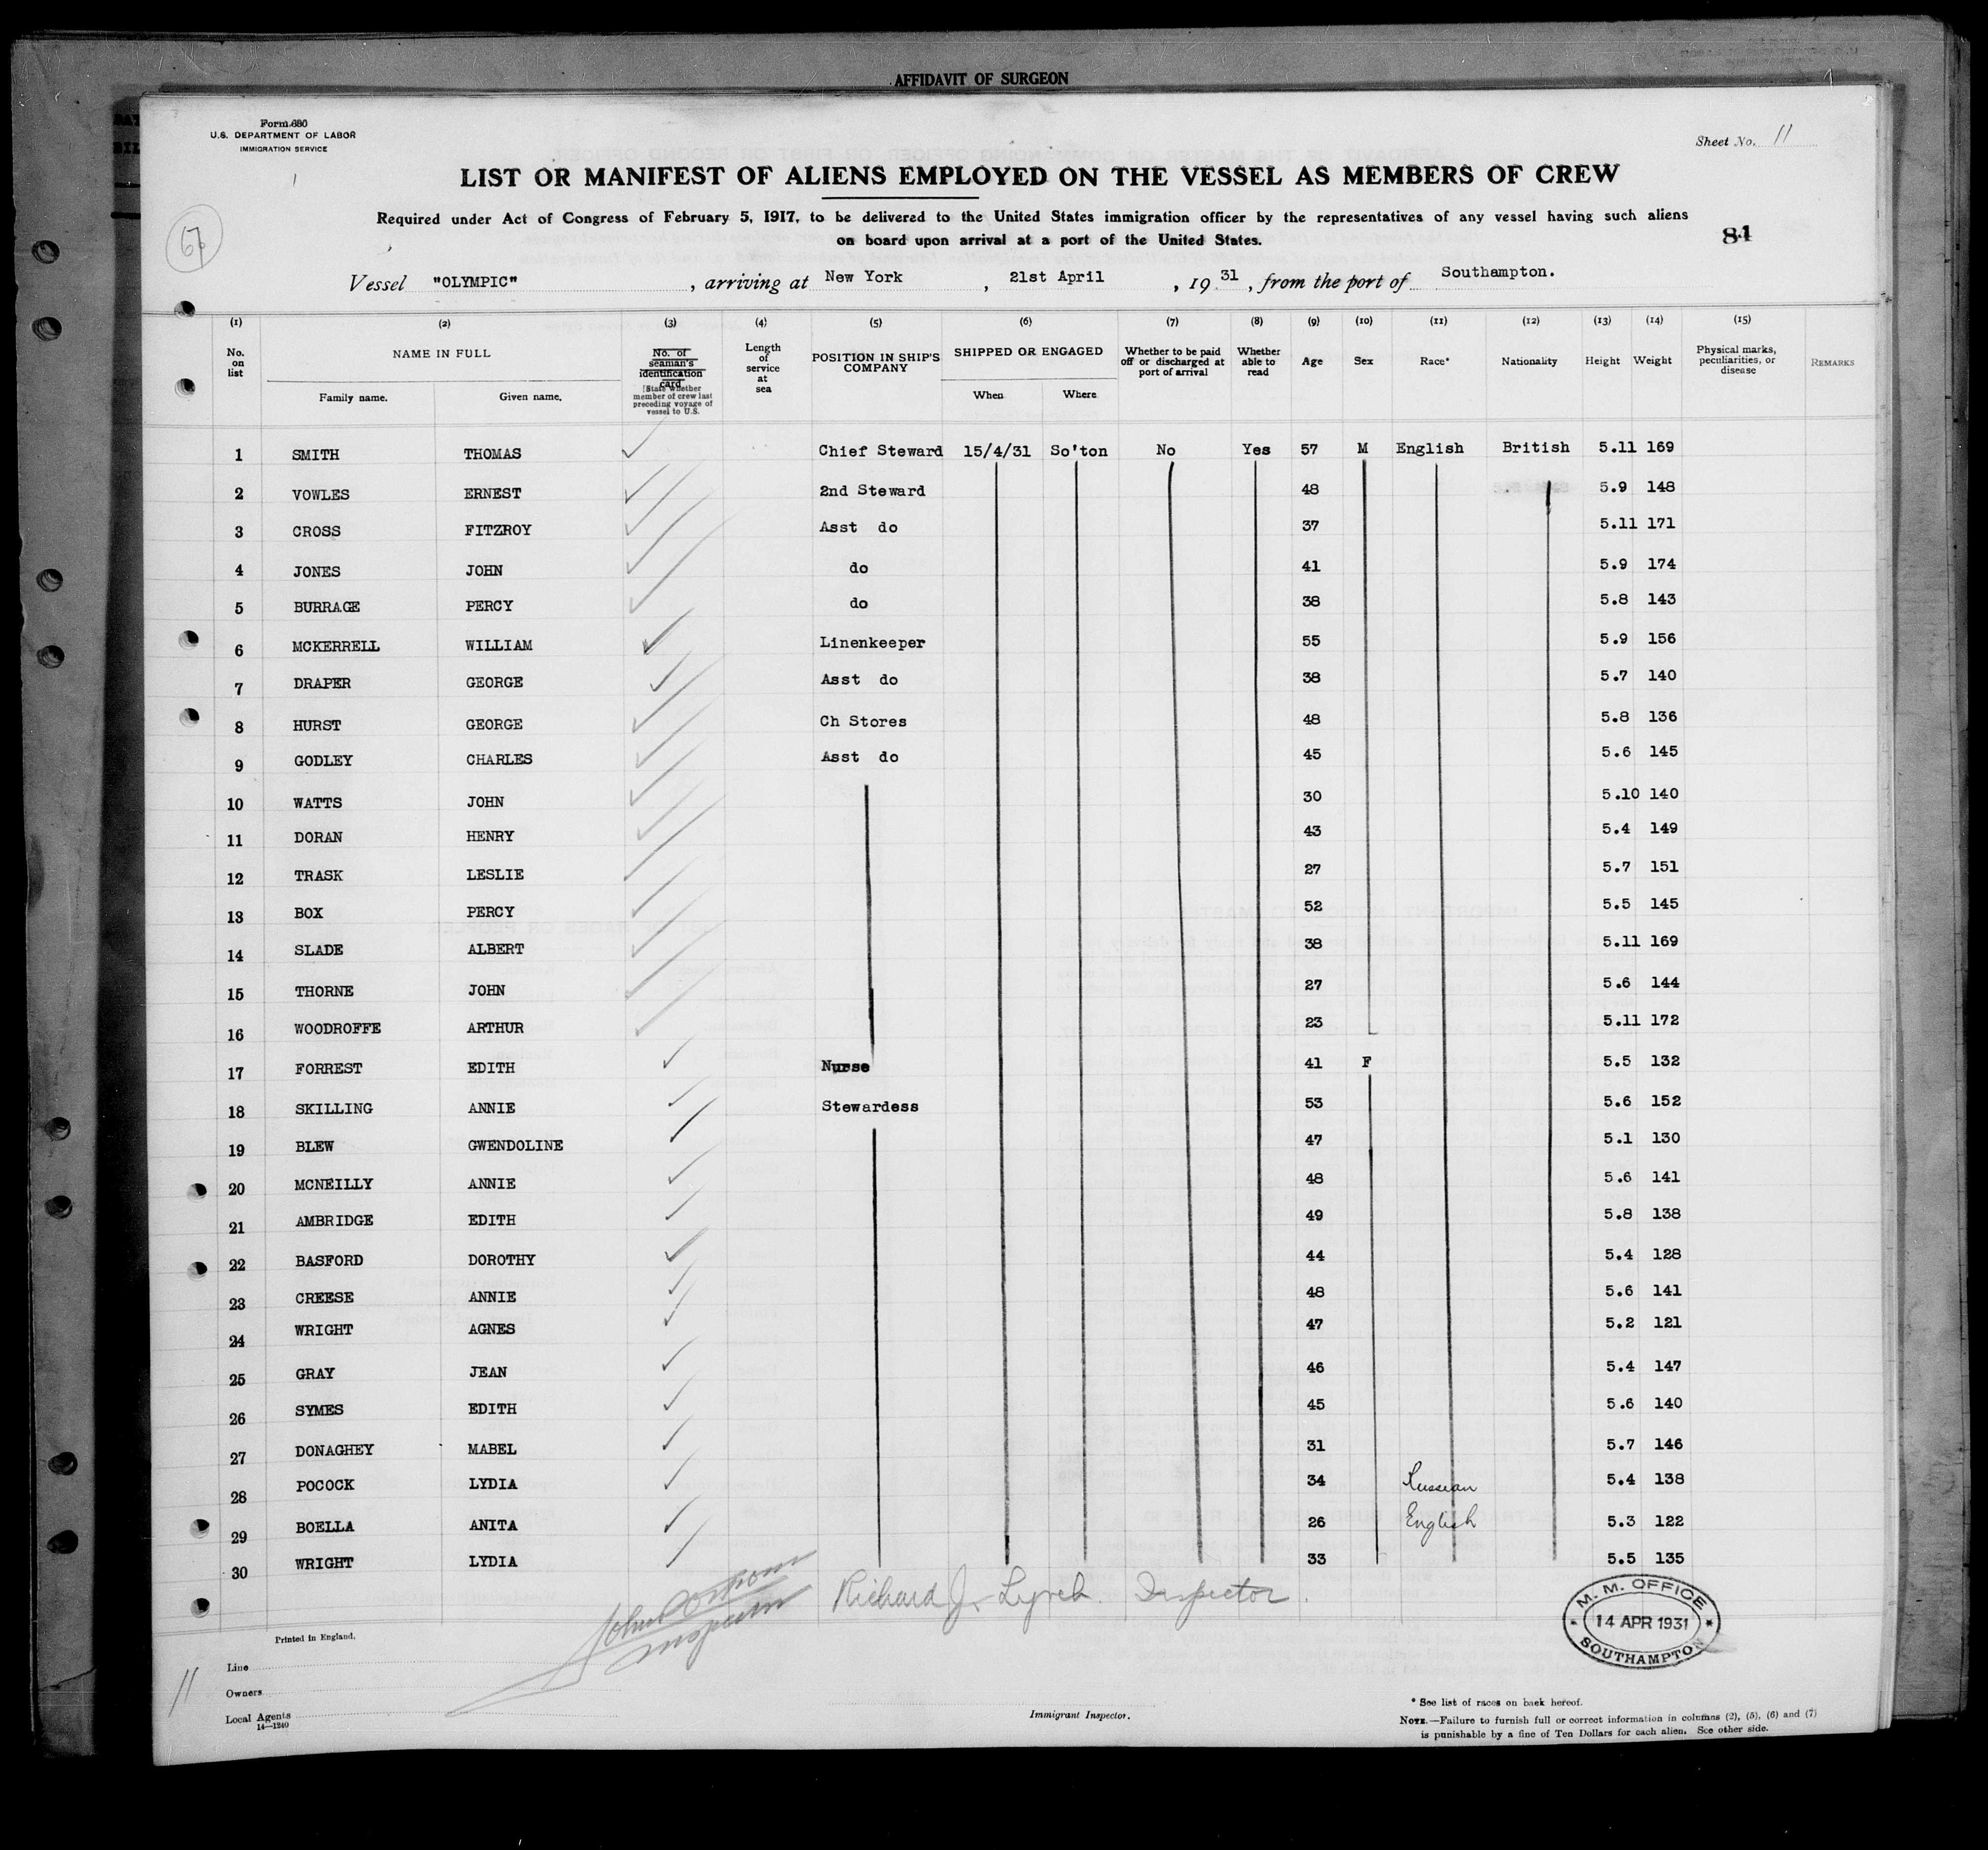 AFFIDAVIT OF SURGEON
Form 680
U.S. DEPARTMENT OF LABOR
IMMIGRATION SERVICE
Sheet No. 11
LIST OR MANIFEST OF ALIENS EMPLOYED ON THE VESSEL AS MEMBERS OF CREW
Required under Act of Congress of February 5, 1917, to be delivered to the United States immigration officer by the representatives of any vessel having such aliens
on board upon arrival at a port of the United States.
67
81
Vessel "OLYMPIC", arriving at New York, 21st April, 1931, from the port of Southampton.
(1) (2) (3) (4) (5) (6) (7) (8) (9) (10) (11) (12) (13) (14) (15)
No. on list
NAME IN FULL
Family name. Given name.
No. of seaman's identification card
[State whether member of crew last preceding voyage of vessel to U.S.
Length of service at sea
POSITION IN SHIP'S COMPANY
SHIPPED OR ENGAGED
When Where
Whether to be paid off or discharged at port of arrival
Whether able to read
Age
Sex
Race*
Nationality
Height
Weight
Physical marks, peculiarities, or disease
REMARKS
1 SMITH THOMAS Chief Steward 15/4/31 So'ton No Yes 57 M English British 5.11 169
2 VOWLES ERNEST 2nd Steward 48 5.9 148
3 CROSS FITZROY Asst do 37 5.11 171
4 JONES JOHN do 41 5.9 174
5 BURRAGE PERCY do 38 5.8 143
6 MCKERRELL WILLIAM Linenkeeper 55 5.9 156
7 DRAPER GEORGE Asst do 38 5.7 140
8 HURST GEORGE Ch Stores 48 5.8 136
9 GODLEY CHARLES Asst do 45 5.6 145
10 WATTS JOHN 30 5.10 140
11 DORAN HENRY 43 5.4 149
12 TRASK LESLIE 27 5.7 151
13 BOX PERCY 52 5.5 145
14 SLADE ALBERT 38 5.11 169
15 THORNE JOHN 27 5.6 144
16 WOODROFFE ARTHUR 23 5.11 172
17 FORREST EDITH Nurse 41 F 5.5 132
18 SKILLING ANNIE Stewardess 53 5.6 152
19 BLEW GWENDOLINE 47 5.1 130
20 MCNEILLY ANNIE 48 5.6 141
21 AMBRIDGE EDITH 49 5.8 138
22 BASFORD DOROTHY 44 5.4 128
23 CREESE ANNIE 48 5.6 141
24 WRIGHT AGNES 47 5.2 121
25 GRAY JEAN 46 5.4 147
26 SYMES EDITH 45 5.6 140
27 DONAGHEY MABEL 31 5.7 146
28 POCOCK LYDIA 34 Russian 5.4 138
29 BOELLA ANITA 26 English 5.3 122
30 WRIGHT LYDIA 33 5.5 135
John
Inspector
Richard J. Lynch Inspector.
M. M. OFFICE
14 APR 1931
SOUTHAMPTON
Printed in England.
11
Line
Owners
Local Agents
14—1240
Immigrant Inspector.
* See list of races on back hereof.
NOTE.—Failure to furnish full or correct information in columns (2), (5), (6) and (7)
is punishable by a fine of Ten Dollars for each alien. See other side.